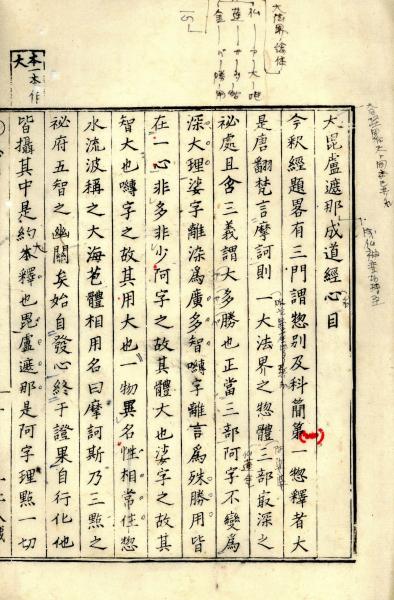 大毘盧遮那成道經心目
今釈經題畧有三門謂惣別及科簡第一惣釋者大
是唐翻梵言摩訶則一大法界之惣體三部㝡深之
祕處且含三義謂大多勝也正當三部阿字不變爲
深大理娑字離染爲廣多智嚩字離言爲殊勝用皆
在一心非多非少阿字之故其體大也娑字之故其
智大也嚩字之故其用大也一物異名性相常住惣
水流波稱之大海苞體相用名曰摩訶斯乃三點之
祕府五智之幽關矣始自發心終于證果自行化他
皆攝其中是約本釋也毘盧遮那是阿字理點一切
本一本作
大